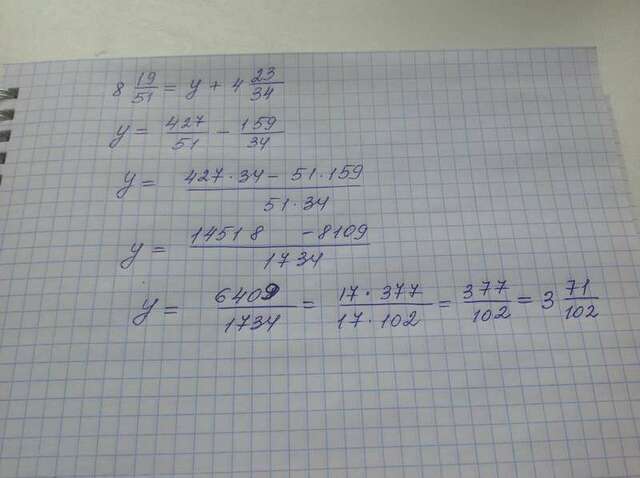 8 19/51 = y + 4 23/34
y = 427/51 - 159/34
y = (427·34 - 51·159)/(51·34)
y = (14518 - 8109)/1734
y = 6409/1734 = (17·377)/(17·102) = 377/102 = 3 71/102